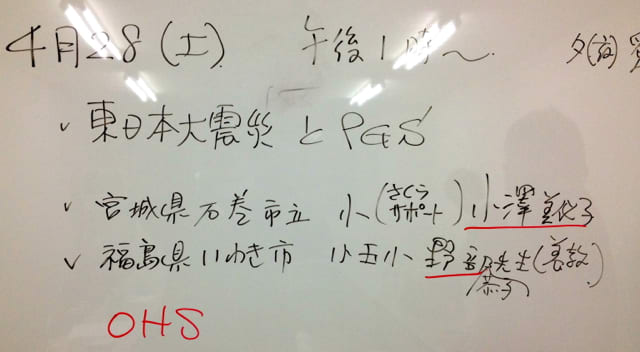 4月28(土) 午後1時〜 夕(夜)
✓ 東日本大震災とPGS
✓ 宮城県石巻市立 小(さくらサポート)小澤
✓ 福島県いわき市 小玉小 野 先生(養教)
恭子
OHS